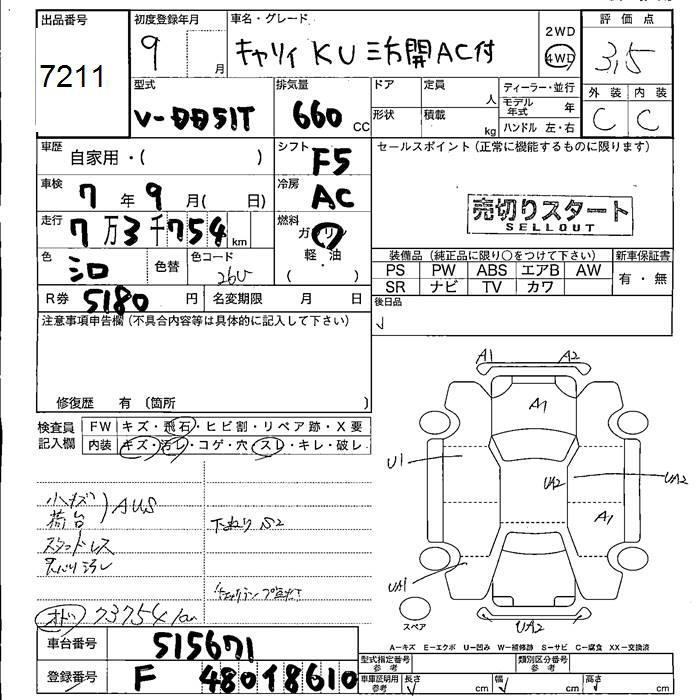 出品番号 初度登録年月 車名・グレード 2WD 評価点
7211 9 月 キャリィ KU 三方開 AC付 4WD 3.5
型式 排気量 ドア 定員 人 ディーラー・並行 外装 内装
V-DD51T 660 CC 形状 積載 kg モデル年式 年 C C
ハンドル 左・右
車歴 自家用・( ) シフト F5 セールスポイント(正常に機能するものに限ります)
車検 7 年 9 月( 日) 冷房 AC
売切りスタート
SELLOUT
走行 7万3千754 km 燃料 ガソリン
軽・油
( ・ )
色 シロ 色替 色コード 26U
装備品(純正品に限り○をつけて下さい) 新車保証書
PS PW ABS エアB AW 有・無
SR ナビ TV カワ
R券 5180 円 名変期限 月 日 後日品
注意事項申告欄(不具合内容等は具体的に記入して下さい)
修復歴 有 (箇所 )
検査員 FW キズ・飛石・ヒビ割・リペア跡・X要
記入欄 内装 キズ・汚レ・コゲ・穴・スレ・キレ・破レ
A1 A2
A1
U1
UA2 UA2
A1
UA1
UA2
スペア
小キズ AUS
荷台
スタッドレス
下まわり S2
オドメ 73754km
A=キズ E=エクボ U=凹み W=補修跡 S=サビ C=腐食 XX=交換済
車台番号 515671
型式指定番号 参考 類別区分番号 参考
登録番号 F 48018610
車庫証明用 参考 長さ cm 幅 cm 高さ cm